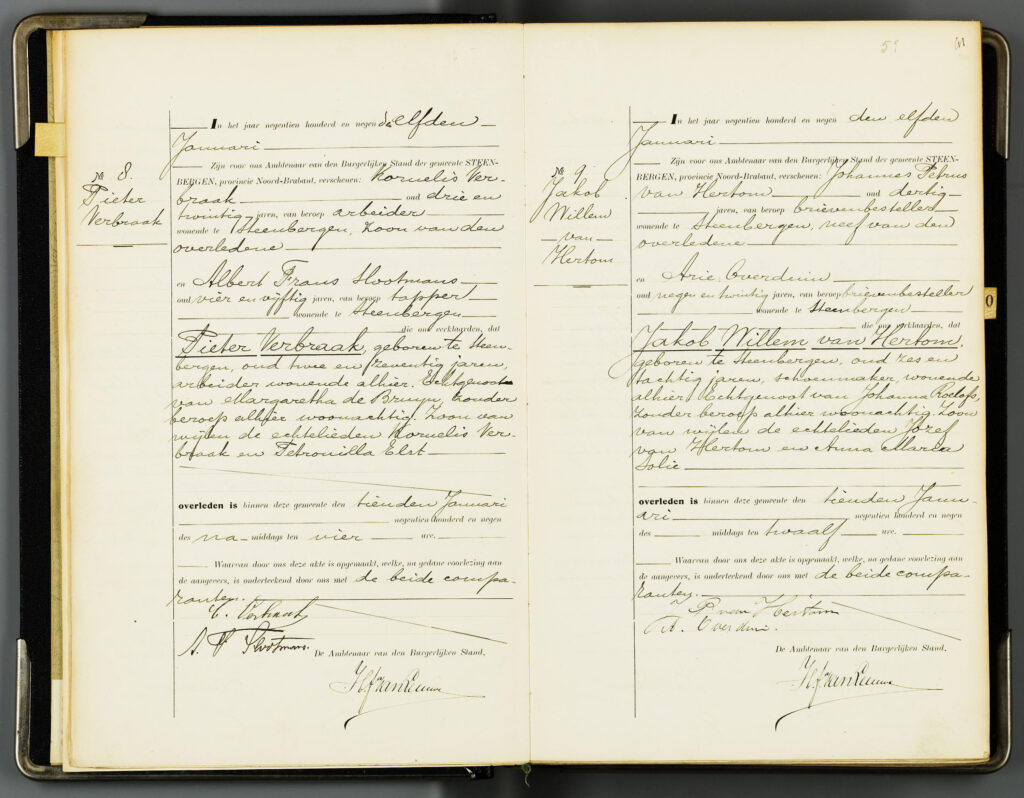 № 8.
Pieter
Verbraak
In het jaar negentien honderd en negen den elfden
Januari
Zijn voor ons Ambtenaar van den Burgerlijken Stand der gemeente STEEN-
BERGEN, provincie Noord-Brabant, verschenen: Kornelis Ver-
braak oud drie en
twintig jaren, van beroep arbeider
wonende te Steenbergen, zoon van den
overledene
en Albert Frans Slootmans
oud vier en vijftig jaren, van beroep tapper
wonende te Steenbergen
die ons verklaarden, dat
Pieter Verbraak, geboren te Steen-
bergen, oud twee en zeventig jaren,
arbeider wonende alhier. Echtgenoot
van Margaretha de Bruyn, zonder
beroep alhier woonachtig. Zoon van
wijlen de echtelieden Kornelis Ver-
braak en Petronilla Elst
overleden is binnen deze gemeente den tienden Januari
negentien honderd en negen
des na- middags ten vier ure.
Waarvan door ons deze akte is opgemaakt, welke, na gedane voorlezing aan
de aangevers, is onderteekend door ons met de beide compa-
ranten.
C. Verbraak
A. F. Slootmans.
De Ambtenaar van den Burgerlijken Stand,
59
№ 9.
Jakob
Willem
van
Hertom
In het jaar negentien honderd en negen den elfden
Januari
Zijn voor ons Ambtenaar van den Burgerlijken Stand der gemeente STEEN-
BERGEN, provincie Noord-Brabant, verschenen: Johannes Petrus
van Hertom oud dertig
jaren, van beroep brievenbesteller
wonende te Steenbergen, neef van den
overledene
en Arie Overduin
oud negen en twintig jaren, van beroep brievenbesteller
wonende te Steenbergen
die ons verklaarden, dat
Jakob Willem van Hertom,
geboren te Steenbergen, oud zes en
tachtig jaren, schoenmaker, wonende
alhier Echtgenoot van Johanna Roelofs,
zonder beroep alhier woonachtig. Zoon
van wijlen de echtelieden Jozef
van Hertom en Anna Maria
Solie
overleden is binnen deze gemeente den tienden Janu-
ari negentien honderd en negen
des middags ten twaalf ure.
Waarvan door ons deze akte is opgemaakt, welke, na gedane voorlezing aan
de aangevers, is onderteekend door ons met de beide compa-
ranten.
J P van Hertom
A. Overduin.
De Ambtenaar van den Burgerlijken Stand,